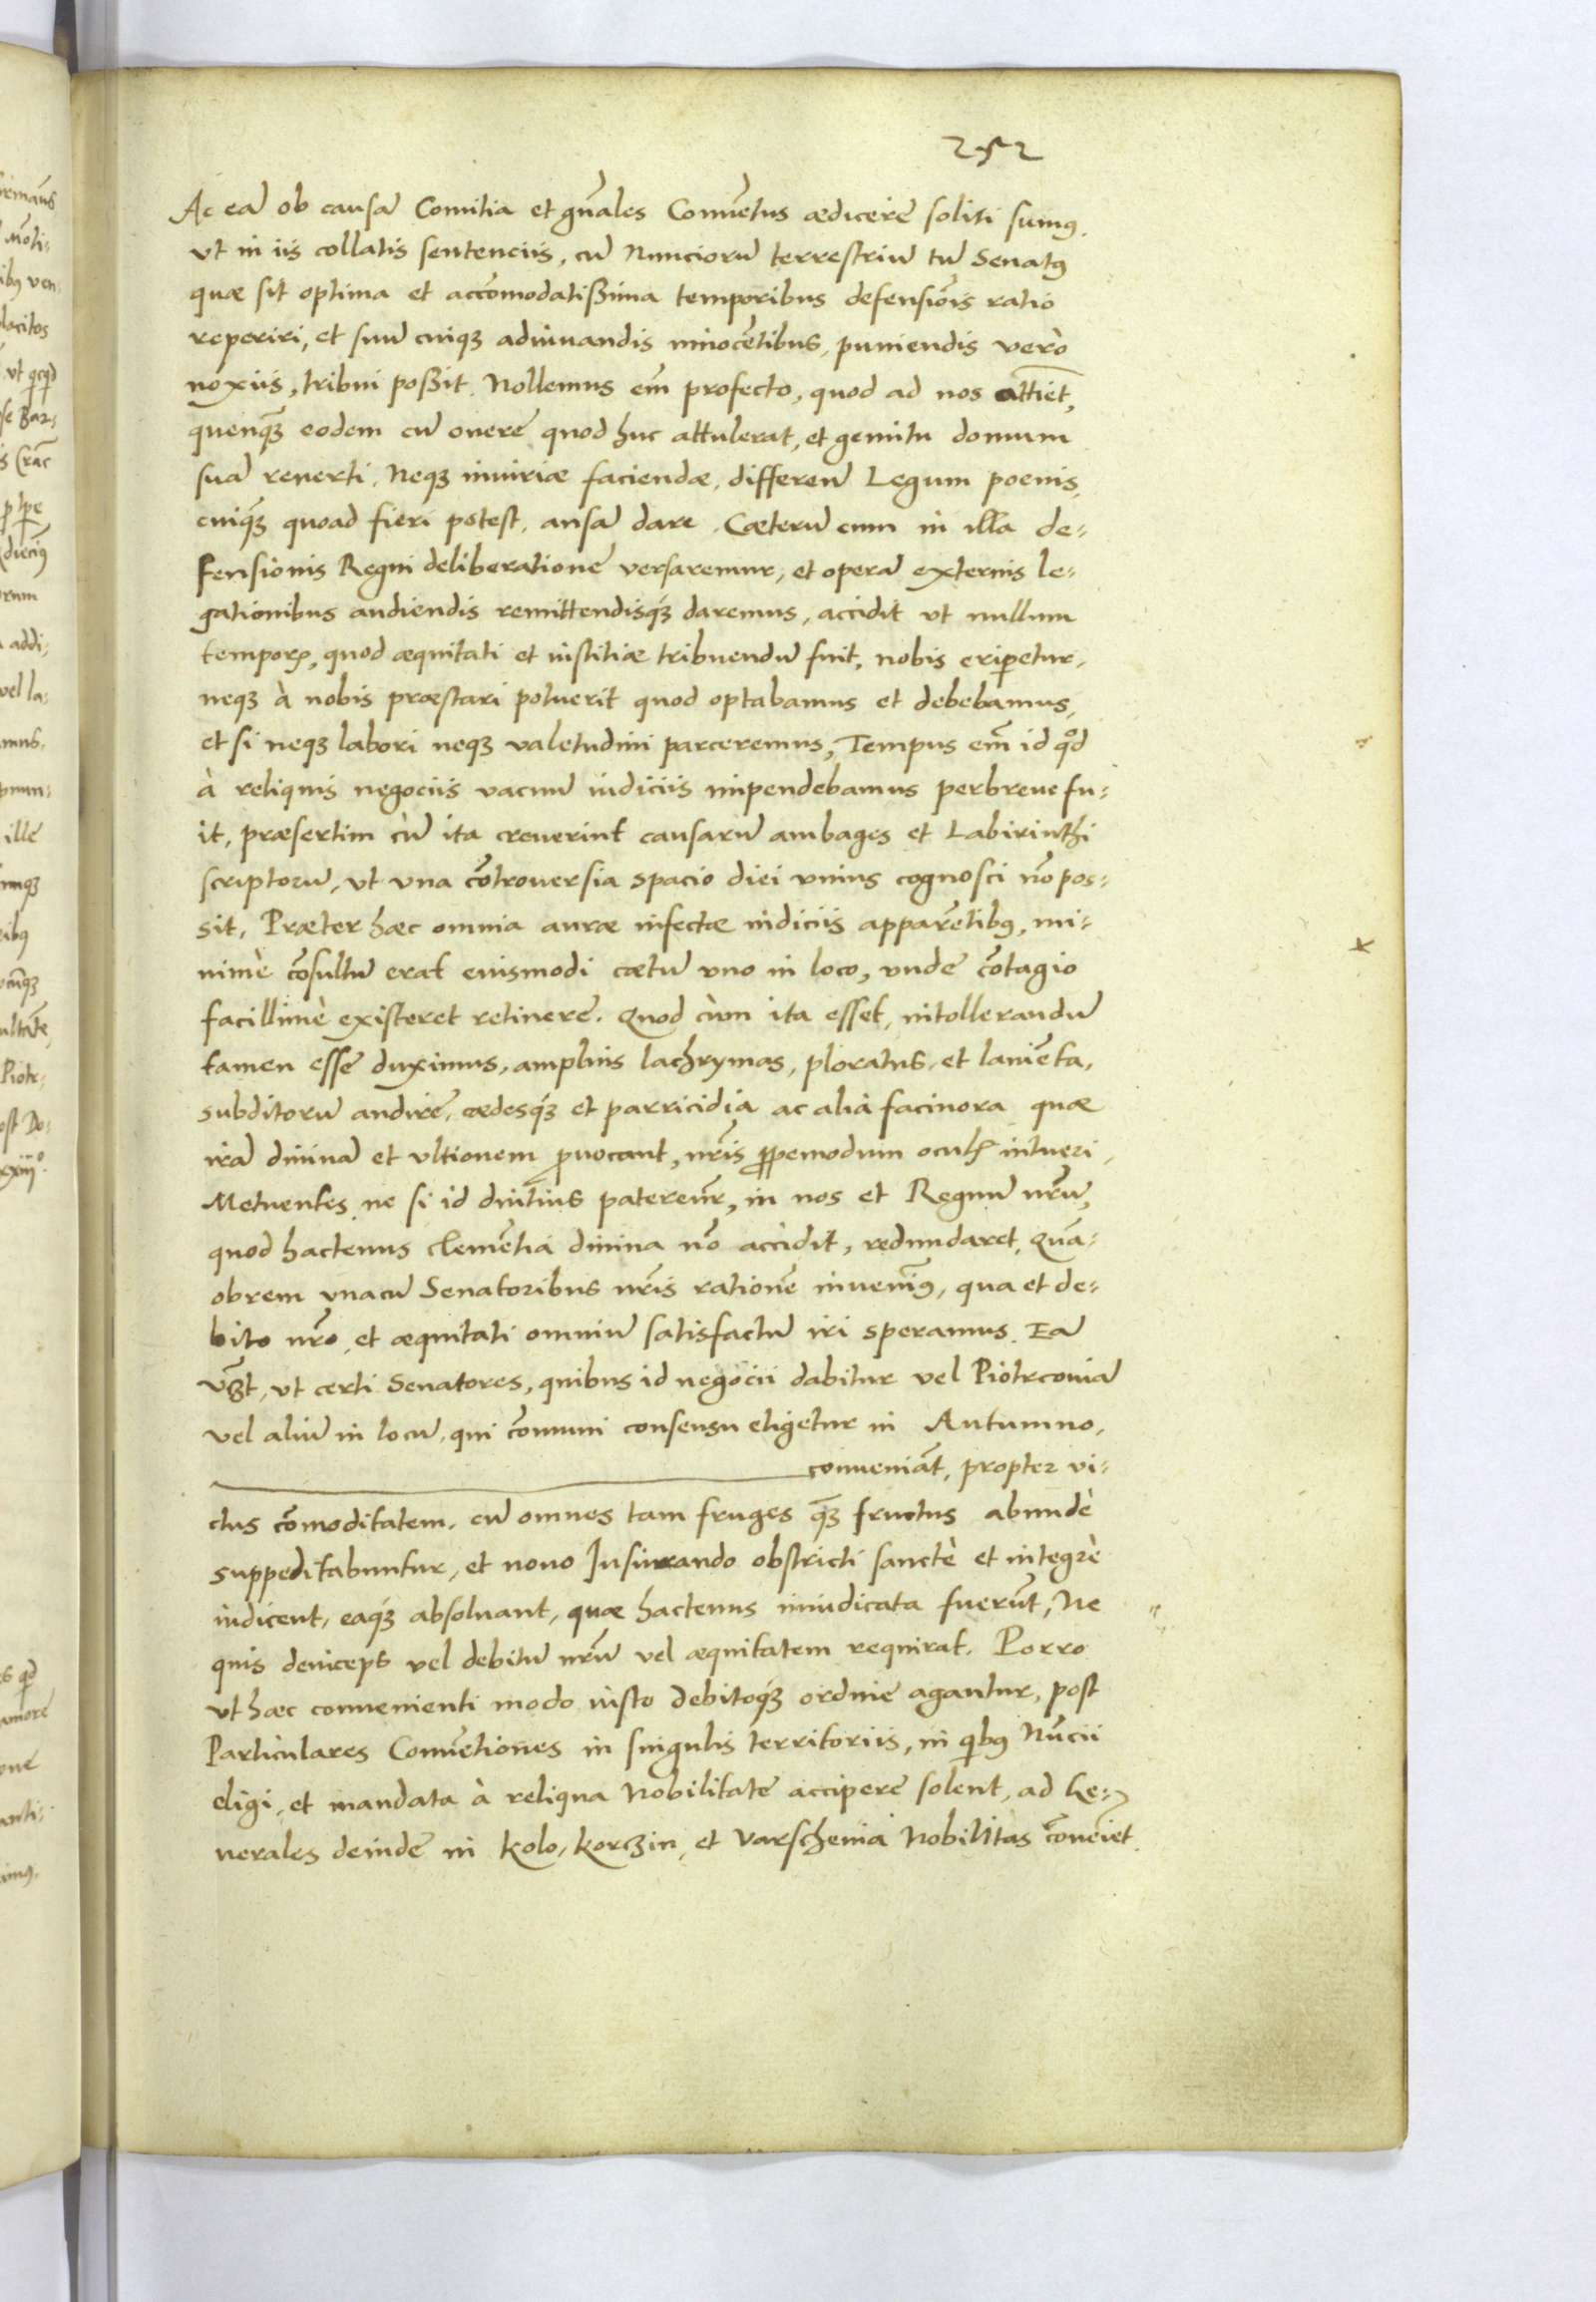 252
Ac eā ob causā Comitia et gn̄ales Conuētus ædicere soliti sumꝰ.
vt in iis collatis sentenciis, cū Nunciorū terrestriū tū Senatꝰ
quæ sit optima et accōmodatißima temporibus defensiōis ratio
reperiri, et suū cuiqꝫ adiuuandis innocētibus, puniendis verò
noxiis, tribui poßit. Nollemus em̄ profecto, quod ad nos attiēt,
quenqꝫ̄ eodem cū onere quod huc attulerat, et gemitu domum
suā reuerti. Neqꝫ iniuriæ faciendæ, differen̄ Legum poenis,
cuiqꝫ̄ quoad fieri potest, ansā dare. Cæterū cum in illa de-
fensionis Regni deliberatione versaremur, et operā externis le-
gationibus audiendis remittendisqꝫ́ daremus, accidit vt nullum
temporꝭ, quod æquitati et iustitiæ tribuendū fuit, nobis eriꝑetur,
neqꝫ à nobis præstari potuerit quod optabamus et debebamus,
et si neqꝫ labori neqꝫ valetudini parceremus, Tempus em̄ id qͦd
à reliquis negociis vacuū iudiciis impendebamus perbreue fu-
it, præsertim cùm ita creuerint causarū ambages et Labirinthi
scriptorū, vt vna cōtrouersia spacio diei vnius cognosci nō pos-
sit, Præter hæc omnia auræ infectæ indiciis apparētibꝰ, mi-
nimè cōsultū erat eiusmodi cætū vno in loco, vnde cōtagio
facillimè existeret retinere. Quod cùm ita esset, intollerandū
tamen esse duximus, amplius lachrymas, ploratus, et lamēta,
subditorū audire, cædesqꝫ́ et parricidia ac alia facinora quæ
irā diuinā et vltionem ꝓuocant, nr̄is ꝓpemodum oculꝭ intueri,
Metuentes ne si id diutius pateremr̄, in nos et Regnū nr̄ū,
quod hactenus clemētia diuina nō accidit, redundaret, Quā-
obrem vnacū Senatoribus nr̄is rationē inuenimꝰ, qua et de-
bito nr̄o, et æquitati omniū satisfactū iri speramus. Ea
v̄ēst, vt certi Senatores, quibus id negocii dabitur vel Piotrconiā
vel aliū in locū, qui cōmuni consensu eligetur in Autumno,
conueniāt, propter vi-
ctus cōmoditatem, cū omnes tam fruges qꝫ̄ fructus abundè
suppeditabuntur, et nouo Iusiurando obstricti sanctè et integrè
iudicent, eaqꝫ́ absoluant, quæ hactenus iniudicata fuerūt, Ne
quis deinceps vel debitū nr̄ū vel æquitatem requirat. Porro
vt hæc conuenienti modo iusto debitoqꝫ́ ordine agantur, post
Particulares Conuētiones in singulis territoriis, in qibꝰ Nūcii
eligi, et mandata à reliqua Nobilitate accipere solent, ad Ge-
nerales deinde in Kolo, Korczin, et Varschenia Nobilitas cōueniet.